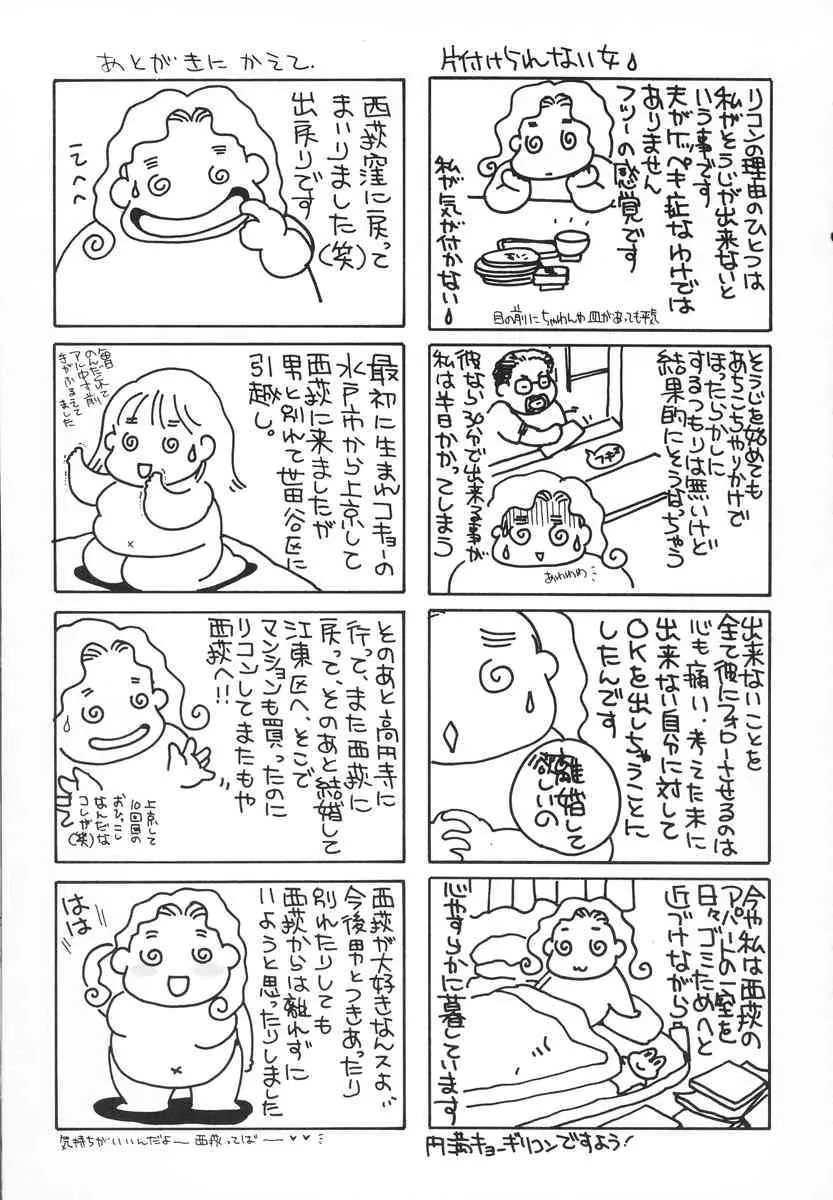 片付けられない女
リコンの理由のひとつは
私がそうじが出来ないと
いう事です
夫がケッペキ症なわけでは
ありません
フツーの感覚です
私が気が付かない
目の前にちゃわんや皿があっても平気
そうじを始めても
あちこちやりかけで
ほったらかしに
するつもりは無いけど
結果的にそうなっちゃう
彼なら30分で出来る事が
私は半日かかってしまう
フキフキ
あわわわ
出来ないことを
全て彼にフォローさせるのは
心も痛い・考えた末に
出来ない自分に対して
OKを出しちゃうことに
したんです
離婚して
欲しいの
今や私は西荻の
アパートの一室を
日々ゴミためへと
近づけながら
心やすらかに暮しています
円満キョーギリコンですよう!
あとがきに かえて.
西荻窪に戻って
まいりました(笑)
出戻りです
てへへ
最初に生まれコキョーの
水戸市から上京して
西荻に来ましたが
男と別れて世田谷区に
引越し。
当時
のんだくれて
アル中寸前
手がふるえて
ました
そのあと高円寺に
行って、また西荻に
戻って、そのあと結婚して
江東区へ、そこで
マンションも買ったのに
リコンしてまたもや
西荻へ!!
上京して
10回目の
おひっこし
なんだな
コレが(笑)
西荻が大好きなんスよ
今後男とつきあったり
別れたりしても
西荻からは離れずに
いようと思ったりしました
はは
気持ちがいいんだよー 西荻ってばー ♥♥